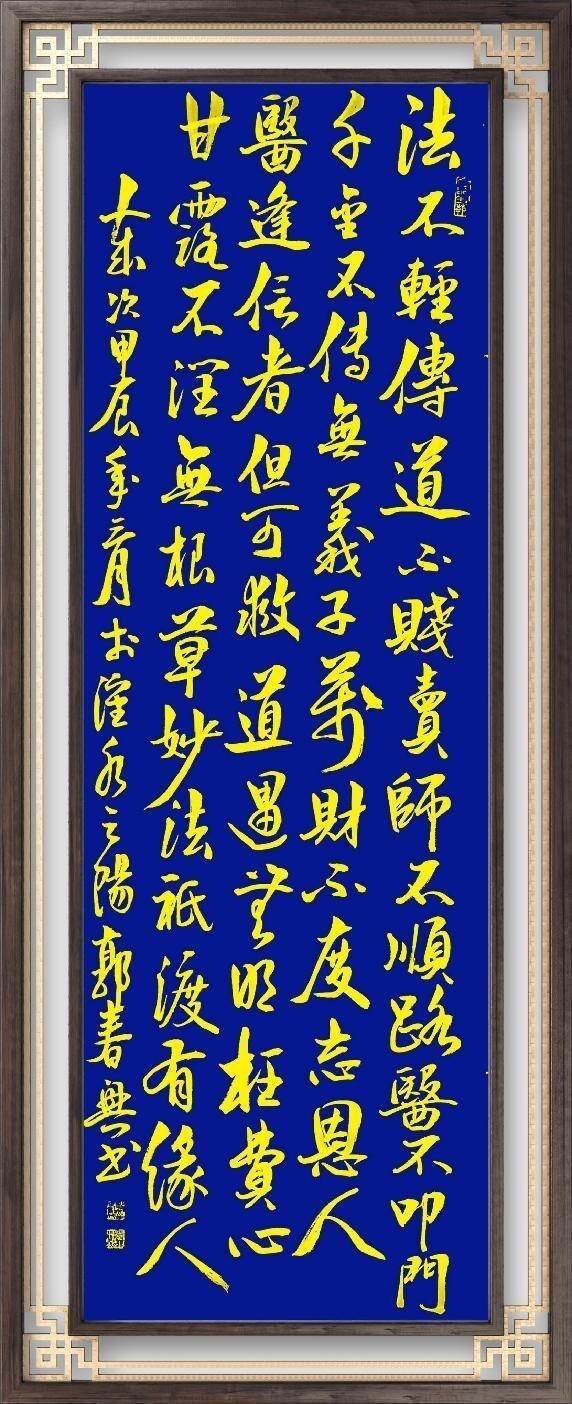 法不輕傳道不賤賣師不順路醫不叩門
千金不传無義子萬財不度忘恩人
醫逢信者但可救道遇无明枉費心
甘露不潤無根草妙法祇渡有緣人
歲次甲辰年月於水之陽郭春興书